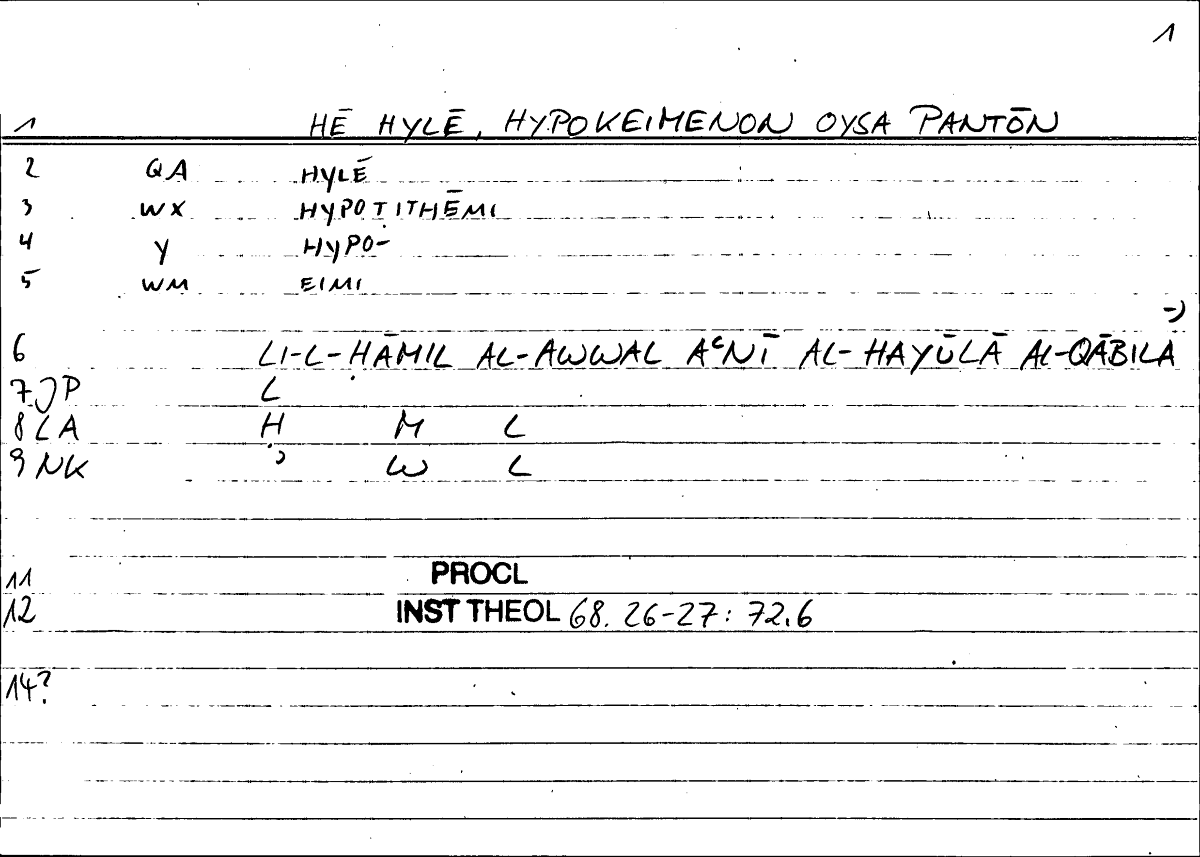 1
1 HĒ HYLĒ, HYPOKEIMENON OYSA PANTŌN
2 QA HYLĒ
3 WX HYPOTITHĒMI
4 Y HYPO-
5 WM EIMI
-)
6 LI-L-HĀMIL AL-AWWAL AʿNĪ AL-HAYŪLĀ AL-QĀBILA
7 JP L
8 LA H M L
9 NK ʾ W L
11 PROCL
12 INST THEOL 68. 26-27: 72.6
14?